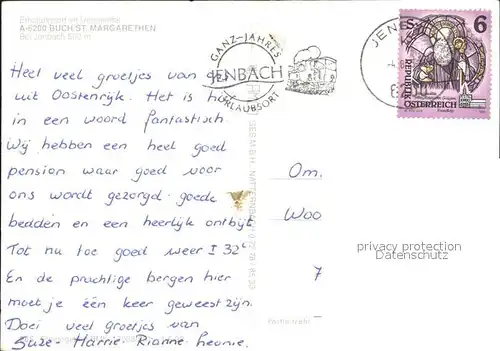 A-6200 BUCH/ST. MARGARETHEN
Bei Jenbach 550 m
GANZ-JAHRES
JENBACH
URLAUBSORT
6
REPUBLIK
ÖSTERREICH
Heel veel groetjes van ons
uit Oostenrijk. Het is hier
in een woord fantastisch.
Wij hebben een heel goed
pension waar goed voor
ons wordt gezorgd goede
bedden en een heerlijk ontbijt
Tot nu toe goed weer I 32°
En de prachtige bergen hier
moet je één keer geweest zijn.
Doei veel groetjes van
Suze - Harrie - Rianne - Leonie.
Om.
Woo
7
privacy protection
Datenschutz